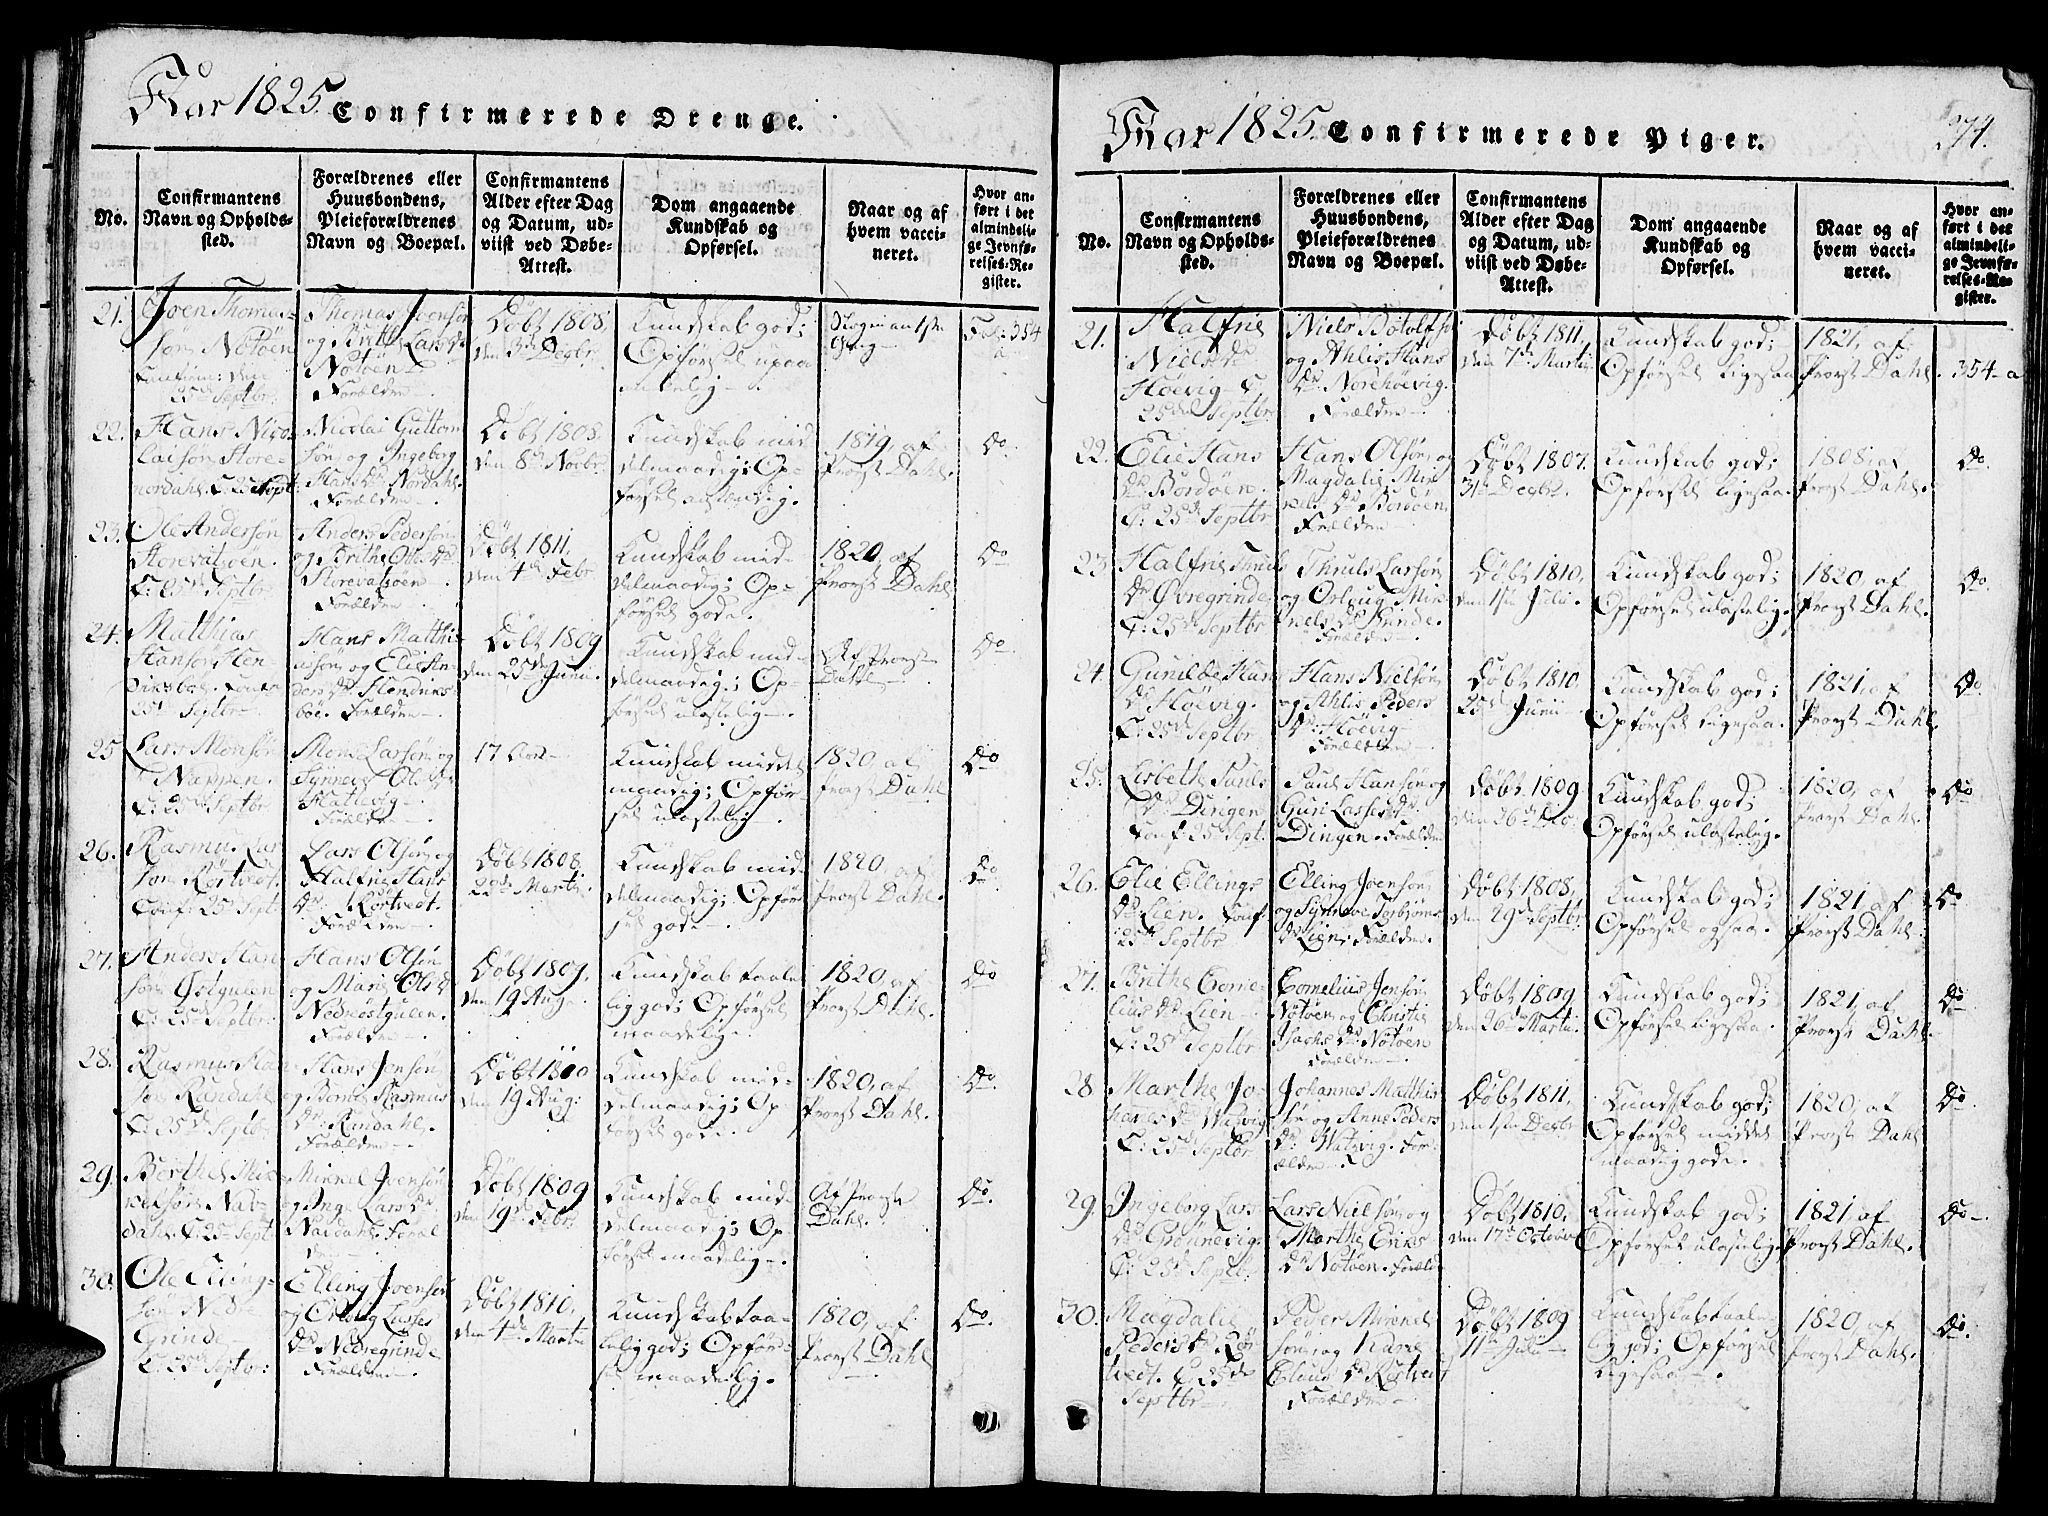 Aar 1825. Confirmerede Drenge.
No.
Confirmantens
Navn og Opholds-
sted.
Forældrenes eller
Huusbondens,
Pleieforældrenes
Navn og Boepæl.
Confirmantens
Alder efter Dag
og Datum, ud-
viist ved Døbe-
Attest.
Dom angaaende
Kundskab og
Opførsel.
Naar og af
hvem vacci-
neret.
Hvor an-
ført i det
almindeli-
ge Jevnfø-
relses-Re-
gister.
21.
Joen Thomas-
søn Notøen
den
25de Septbr.
Thomas Joensøn
og Brithe Larsdr
Notøen
Forældre
Døbt 1808.
den 3de Decbr.
Kundskab god;
Opførsel upaa
Fol: 354
a
22.
Hans Nico-
laisøn Store-
nordahl. C. 25 Sept:
Nicolai Guttorm
søn og Ingeborg
Hansdr Nordahl.
Forældre
Døbt 1808.
den 8de Novbr.
Kundskab mid
delmaadig; Op-
førsel anstændig.
1819, af
Provst Dahl.
Do
23.
Ole Andersøn
Storevatsøen.
C: 25de Septbr
Anders Pedersøn
og Brithe Olsdr
Storevatsøen.
Forældre
Døbt 1811.
den 4de Febr
Kundskab mid-
delmaadig; Op-
førsel gode.
1820, af
Provst Dahl.
Do
24.
Matthias
Hansøn Hen-
riksbøe.
25de Septbr
Hans Matthi-
asøn og Elie An-
dersdr Hendriks
bøe. Forældre
Døbt 1809
den 25de Junii.
Kundskab mid-
delmaadig; Op-
førsel ulastelig
Af Provst
Dahl
Do
25
Lars Monsøn
Næppen.
C: 25de Septbr
Mons Larsøn og
Synneve Olsdr
Hatlevig
Forældre
17 Aar
Kundskab middel
maadig; Opfør-
sel ulastelig
1820, af
Provst Dahl
Do
26.
Rasmus Lar
søn Rørtvedt.
Conf: 25de Sept:
Lars Olsøn og
Halfrie Hans
dr. Rørtvedt.
Forældre
Døbt 1808.
22de Martii.
Kundskab mid
delmaadig; Opfør
sel gode
1820, af
Provst Dahl.
Do
27.
Anders Han
søn Østgulen
C: 25de Septbr:
Hans Olsøn
og Marie Olsdr
Nedreøstgulen.
Forældre
Døbt 1809.
den 19 Aug
Kundskab taale
lig god; Opførsel
maadelig
1820, af
Provst Dahl.
Do
28.
Rasmus Han
søn Rundahl
C: 25de Septbr.
Hans Jonsøn
og Rasmus
dr. Rundahl.
Forældre
Døbt 1800
den 19 Aug:
Kundskab mid-
delmaadig; Op
førsel gode.
1820, af
Provst Dahl.
Do
29.
Berthel Mic
kelsøn
dahl. C. 25de Sept
Mickel Joensøn
og Ing. Larsdr.
Foræl
dre
Døbt 1809
den 19de Febr.
Kundskab mid
delmaadig; Op-
førsel maadelig
Af Provst
Dahl.
Do.
30.
Ole Elling-
søn Nedre
Grinde
C. 25de Septbr:
Elling Joensøn
og Larses
dr Nedregrinde
Forældre
Døbt 1810.
den 4de Martii
Kundskab taa-
lelig god; Opfør-
sel maadelig.
1820, af
Provst Dahl
Do.
Aar 1825. Confirmerede Piger.
274.
No.
Confirmantens
Navn og Opholds-
sted.
Forældrenes eller
Huusbondens,
Pleieforældrenes
Navn og Boepæl.
Confirmantens
Alder efter Dag
og Datum, ud-
viist ved Døbe-
Attest.
Dom angaaende
Kundskab og
Opførsel.
Naar og af
hvem vacci-
neret.
Hvor an-
ført i det
almindeli-
ge Jevnfø-
relses-Re-
gister.
21.
Halfrie
Nielsdr
Høevig C
25de Septbr
Niels Botolfsø
og Ahlis Hans
dr. Norehøevig.
Forældre
Døbt 1811,
den 7de Martii
Kundskab god;
Opførsel ligesaa
1821, af
Provst Dahl.
354-a
22.
Elie Hans
dr Bordøen.
C: 25de Septbr
Hans Olsøn og
Magdalie Mic
kelsdr Bordøen
Forældre
Døbt 1807.
31te Decbr.
Kundskab god;
Opførsel ligesaa.
1808, af
Provst Dahl.
Do.
23
Halfrie Thruls
dr Øvregrinde
C: 25de Septbr
Thruls Larsøn
og Mic
kelsdr Grinde.
Forældre
Døbt 1810.
den 1ste Julii.
Kundskab god;
Opførsel ulastelig.
1820, af
Provst Dahl.
Do
24.
Gunilde Hans
dr Høevig.
C: 25de Septbr
Hans Nielsøn
og Ahlis Peders
dr. Høevig
Forældre
Døbt 1810.
25de Junii
Kundskab god;
Opførsel ligesaa.
1821, af
Provst Dahl.
Do.
25.
Lisbethe Pauls
dr Dingen
Conf: 25de Sept:
Paul Hansøn og
Guri Lassesdr
Dingen. Forældre
Døbt 1809
den 26de
Kundskab god;
Opførsel ulastelig.
1820, af
Provst Dahl.
Do
26.
Elie Ellings
dr Lien. Conf:
25de Septbr
Elling Joensøn
og Synneve Torbjørns
dr Lien. Forældre.
Døbt 1808,
den 29de Septbr
Kundskab god;
Opførsel ogsaa.
1821 af
Provst Dahl.
Do
27.
Brithe Corne-
liusdr Lien
C: 25de Septbr
Cornelius Jensøn
Notøen og Christie
Isachsdr Notøen
Forældre
Døbt 1809.
den 26de Martii.
Kundskab god;
Opførsel ligesaa.
1821, af
Provst Dahl.
Do
28.
Marthe Jo-
hannesdr Watvig
C: 25de Septbr
Johannes Matthis
sø og Anne Peders
dr. Watzvig. For
ældre
Døbt 1811.
den 1ste Decbr
Kundskab god;
Opførsel middel
maadig gode.
1820, af
Provst Dahl
Do
29.
Ingeborg Lars
dr Grønnevig
C: 25de Septb.
Lars Nielsøn og
Marthe Eriks
dr Notøen. Forældre
Døbt 1810.
den 17de October
Kundskab god;
Opførsel ulastelig
1821 af
Provst Dahl.
Do
30.
Magdalie
Pedersdr Rør
tvedt. C 25de
Septbr
Peder Mickel
søn og Karie
dr Rørtvedt
Forældre
Døbt 1809
11te Julii
Kundskab taale-
lig god; Opførsel
ligesaa.
1820 af
Provst Dahl.
Do.